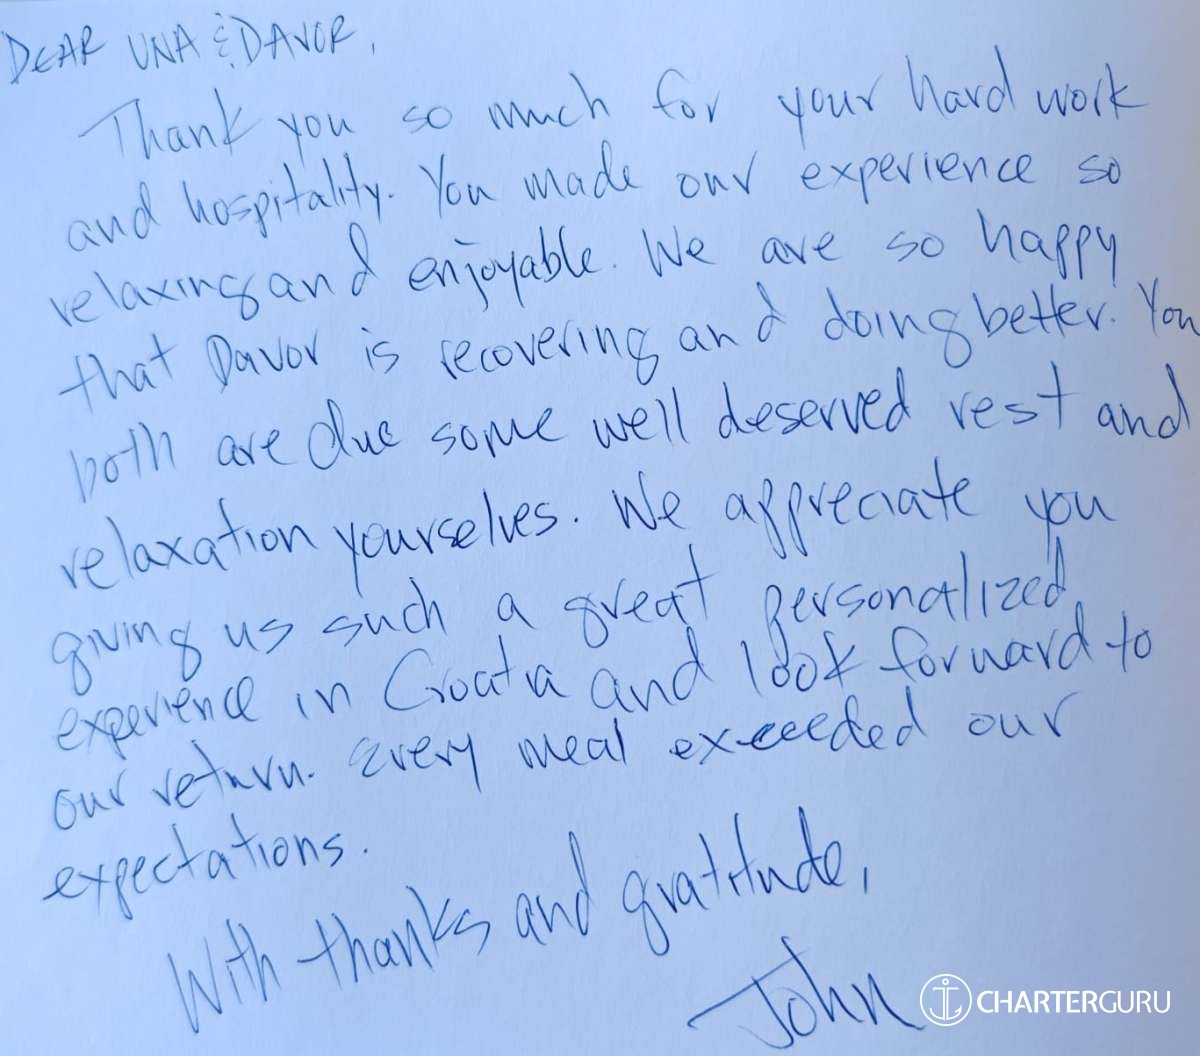 DEAR UNA & DAVOR,
Thank you so much for your hard work
and hospitality. You made our experience so
relaxing and enjoyable. We are so happy
that Davor is recovering and doing better. You
both are due some well deserved rest and
relaxation yourselves. We appreciate you
giving us such a great personalized
experience in Croatia and look forward to
our return. Every meal exceeded our
expectations.
With thanks and gratitude,
John
CHARTERGURU